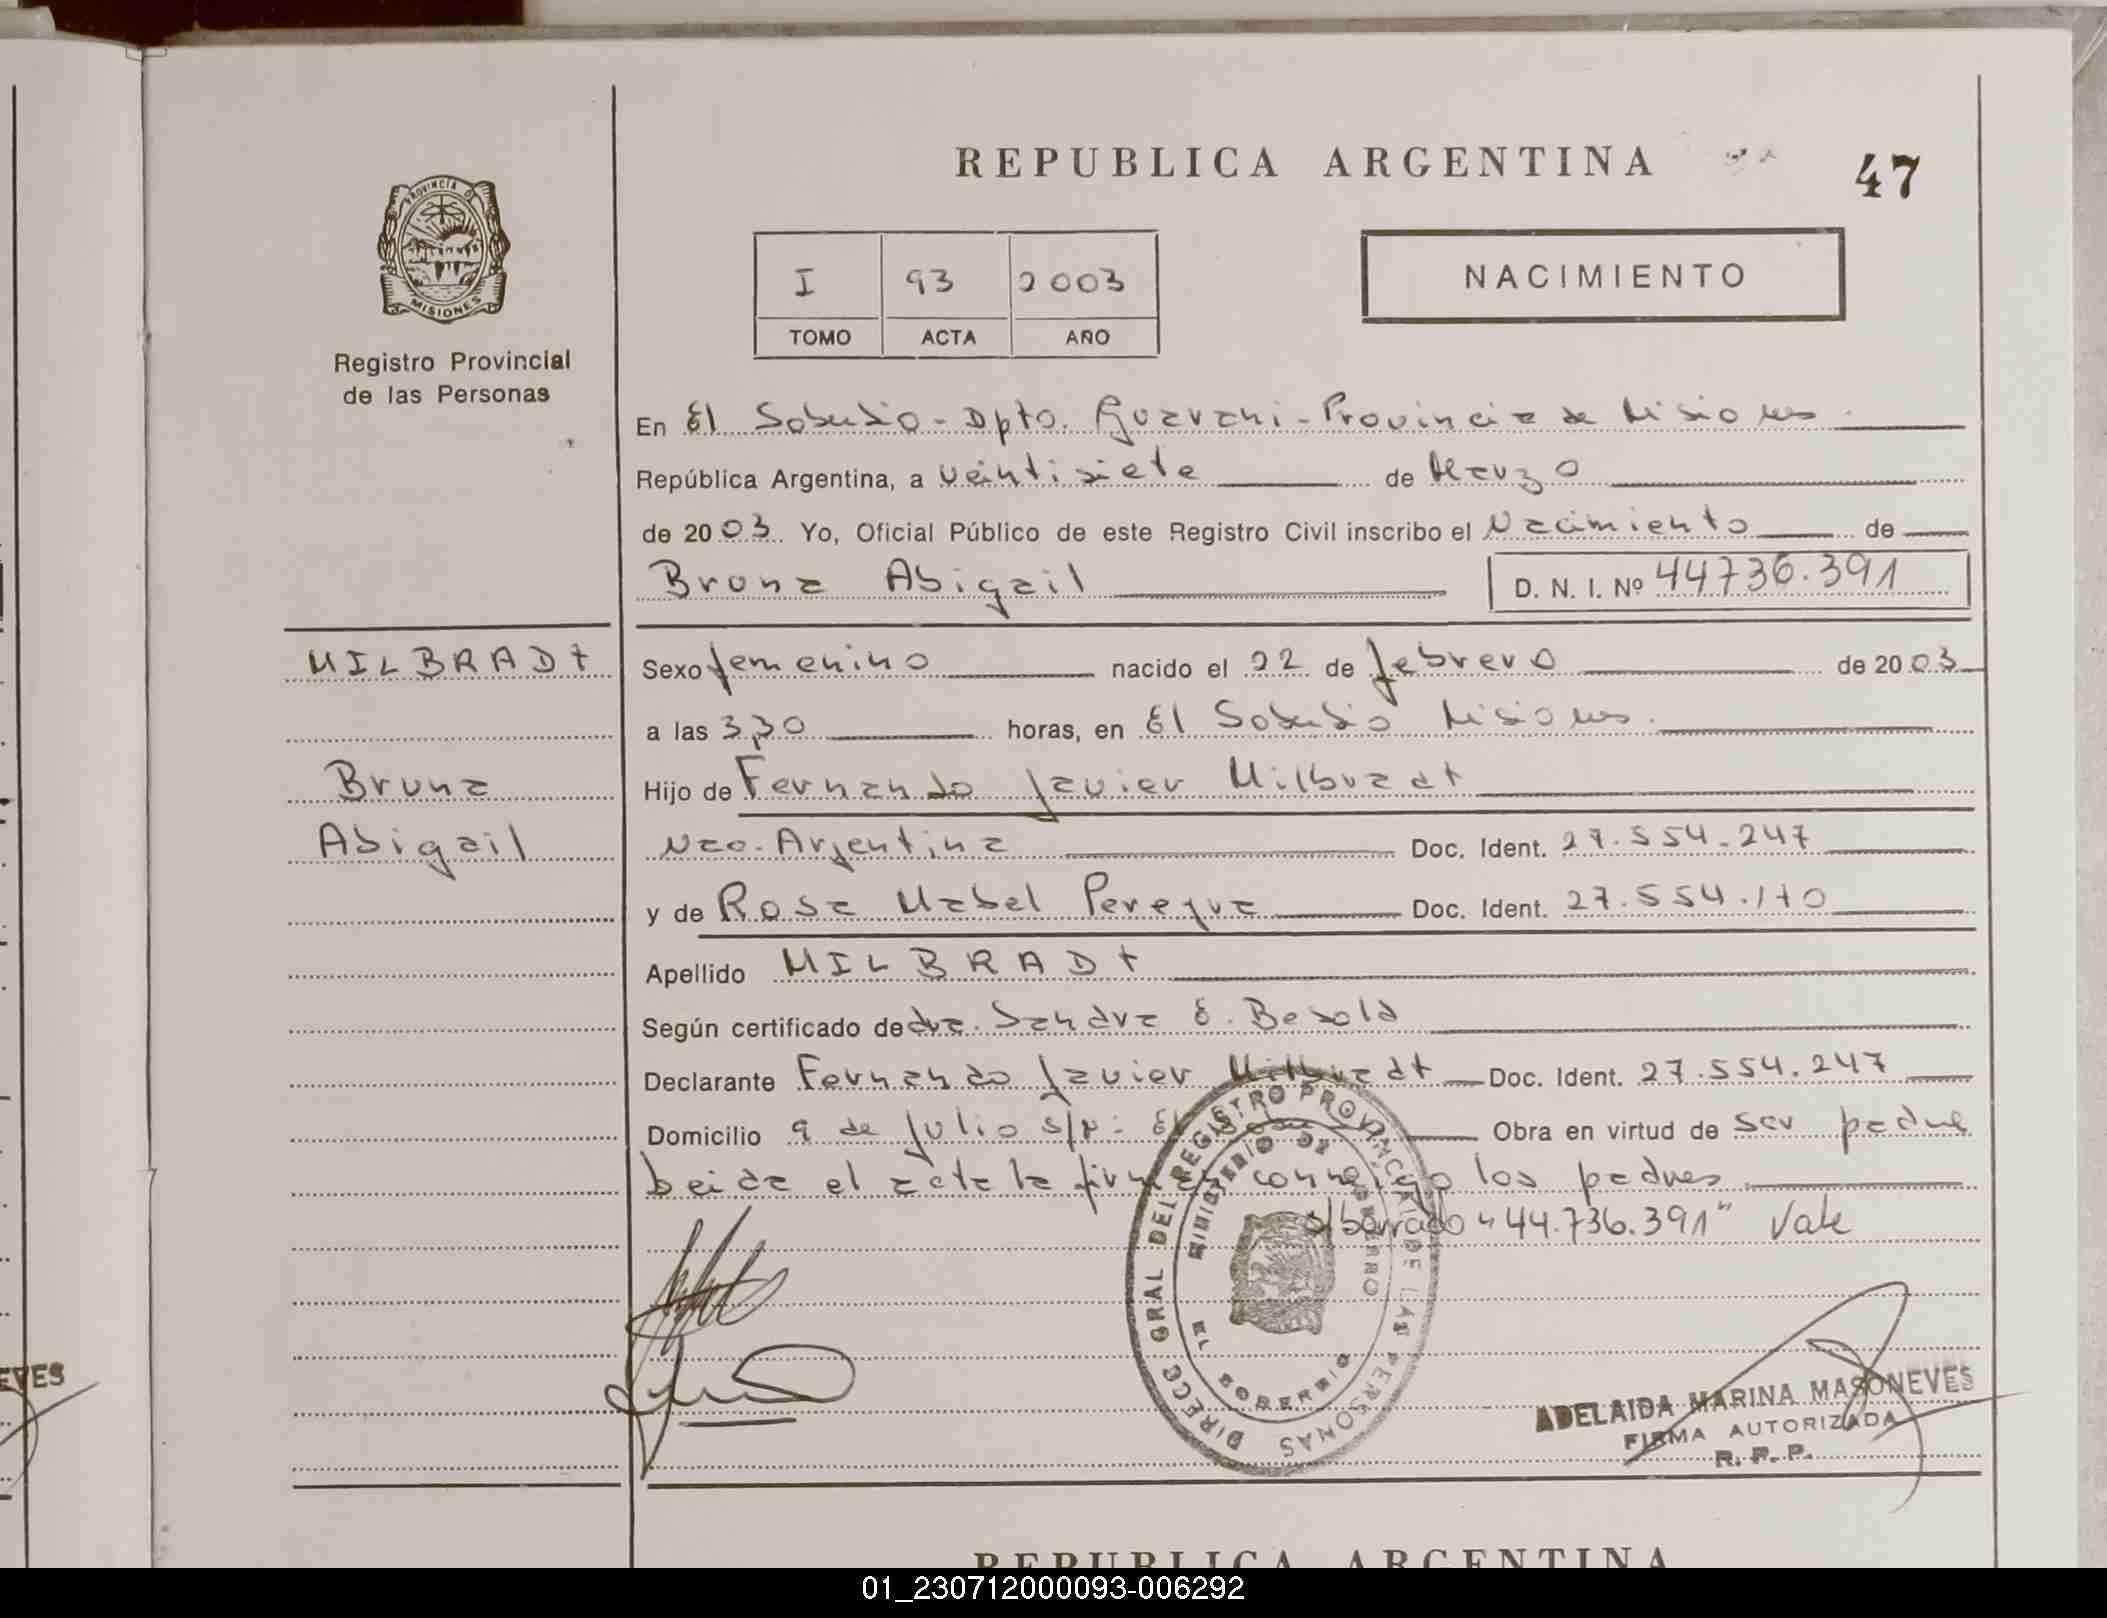 REPUBLICA ARGENTINA
47
PROVINCIA DE
MISIONES
Registro Provincial
de las Personas
I 93 2003
TOMO ACTA AÑO
NACIMIENTO
En El Soberbio - Dpto. Guarani - Provincia de Misiones.
República Argentina, a veintisiete de Marzo
de 2003 Yo, Oficial Público de este Registro Civil inscribo el Nacimiento de
Bruna Abigail D. N. I. Nº 44736.391
MILBRADt
Bruna
Abigail
Sexo femenino nacido el 22 de febrero de 2003
a las 3,30 horas, en El Soberbio Misiones.
Hijo de Fernando Javier Milbradt
Nac. Argentina Doc. Ident. 27.554.247
y de Rosa Mabel Pereyra Doc. Ident. 27.554.170
Apellido MILBRADt
Según certificado de dra. Sandra E. Besold
Declarante Fernando Javier Milbradt Doc. Ident. 27.554.247
Domicilio 9 de Julio s/n: El Obra en virtud de ser padre
leida el acta la firman conmigo los padres
s/borrado "44.736.391" Vale
DIRECC GRAL DEL REGISTRO PROVINCIAL DE LAS PERSONAS
MINISTERIO DE GOBIERNO
EL SOBERBIO
ADELAIDA MARINA MASONEVES
FIRMA AUTORIZADA
R. P. P.
EVES
REPUBLICA ARGENTINA
01_230712000093-006292